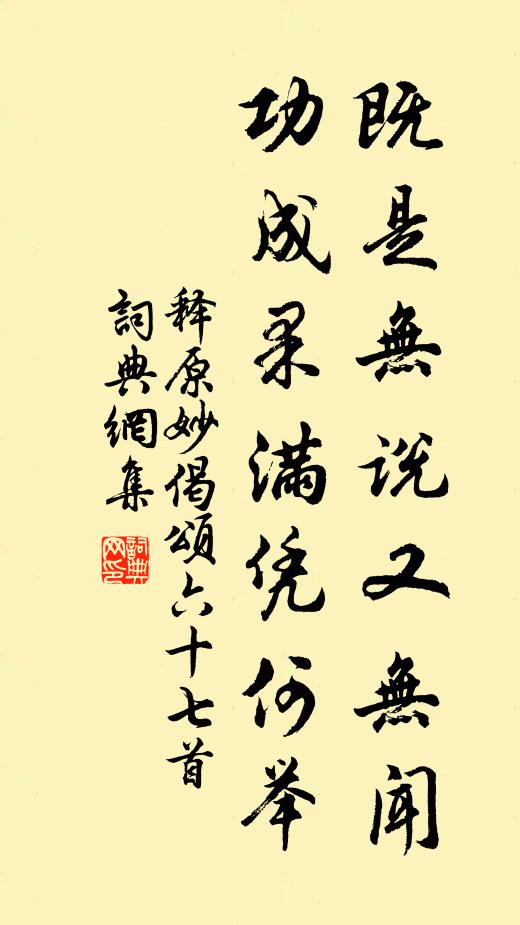 既是無説又無聞
功成果滿凭何举
释原妙偈頌六十七首
詞典網集
詞典網印